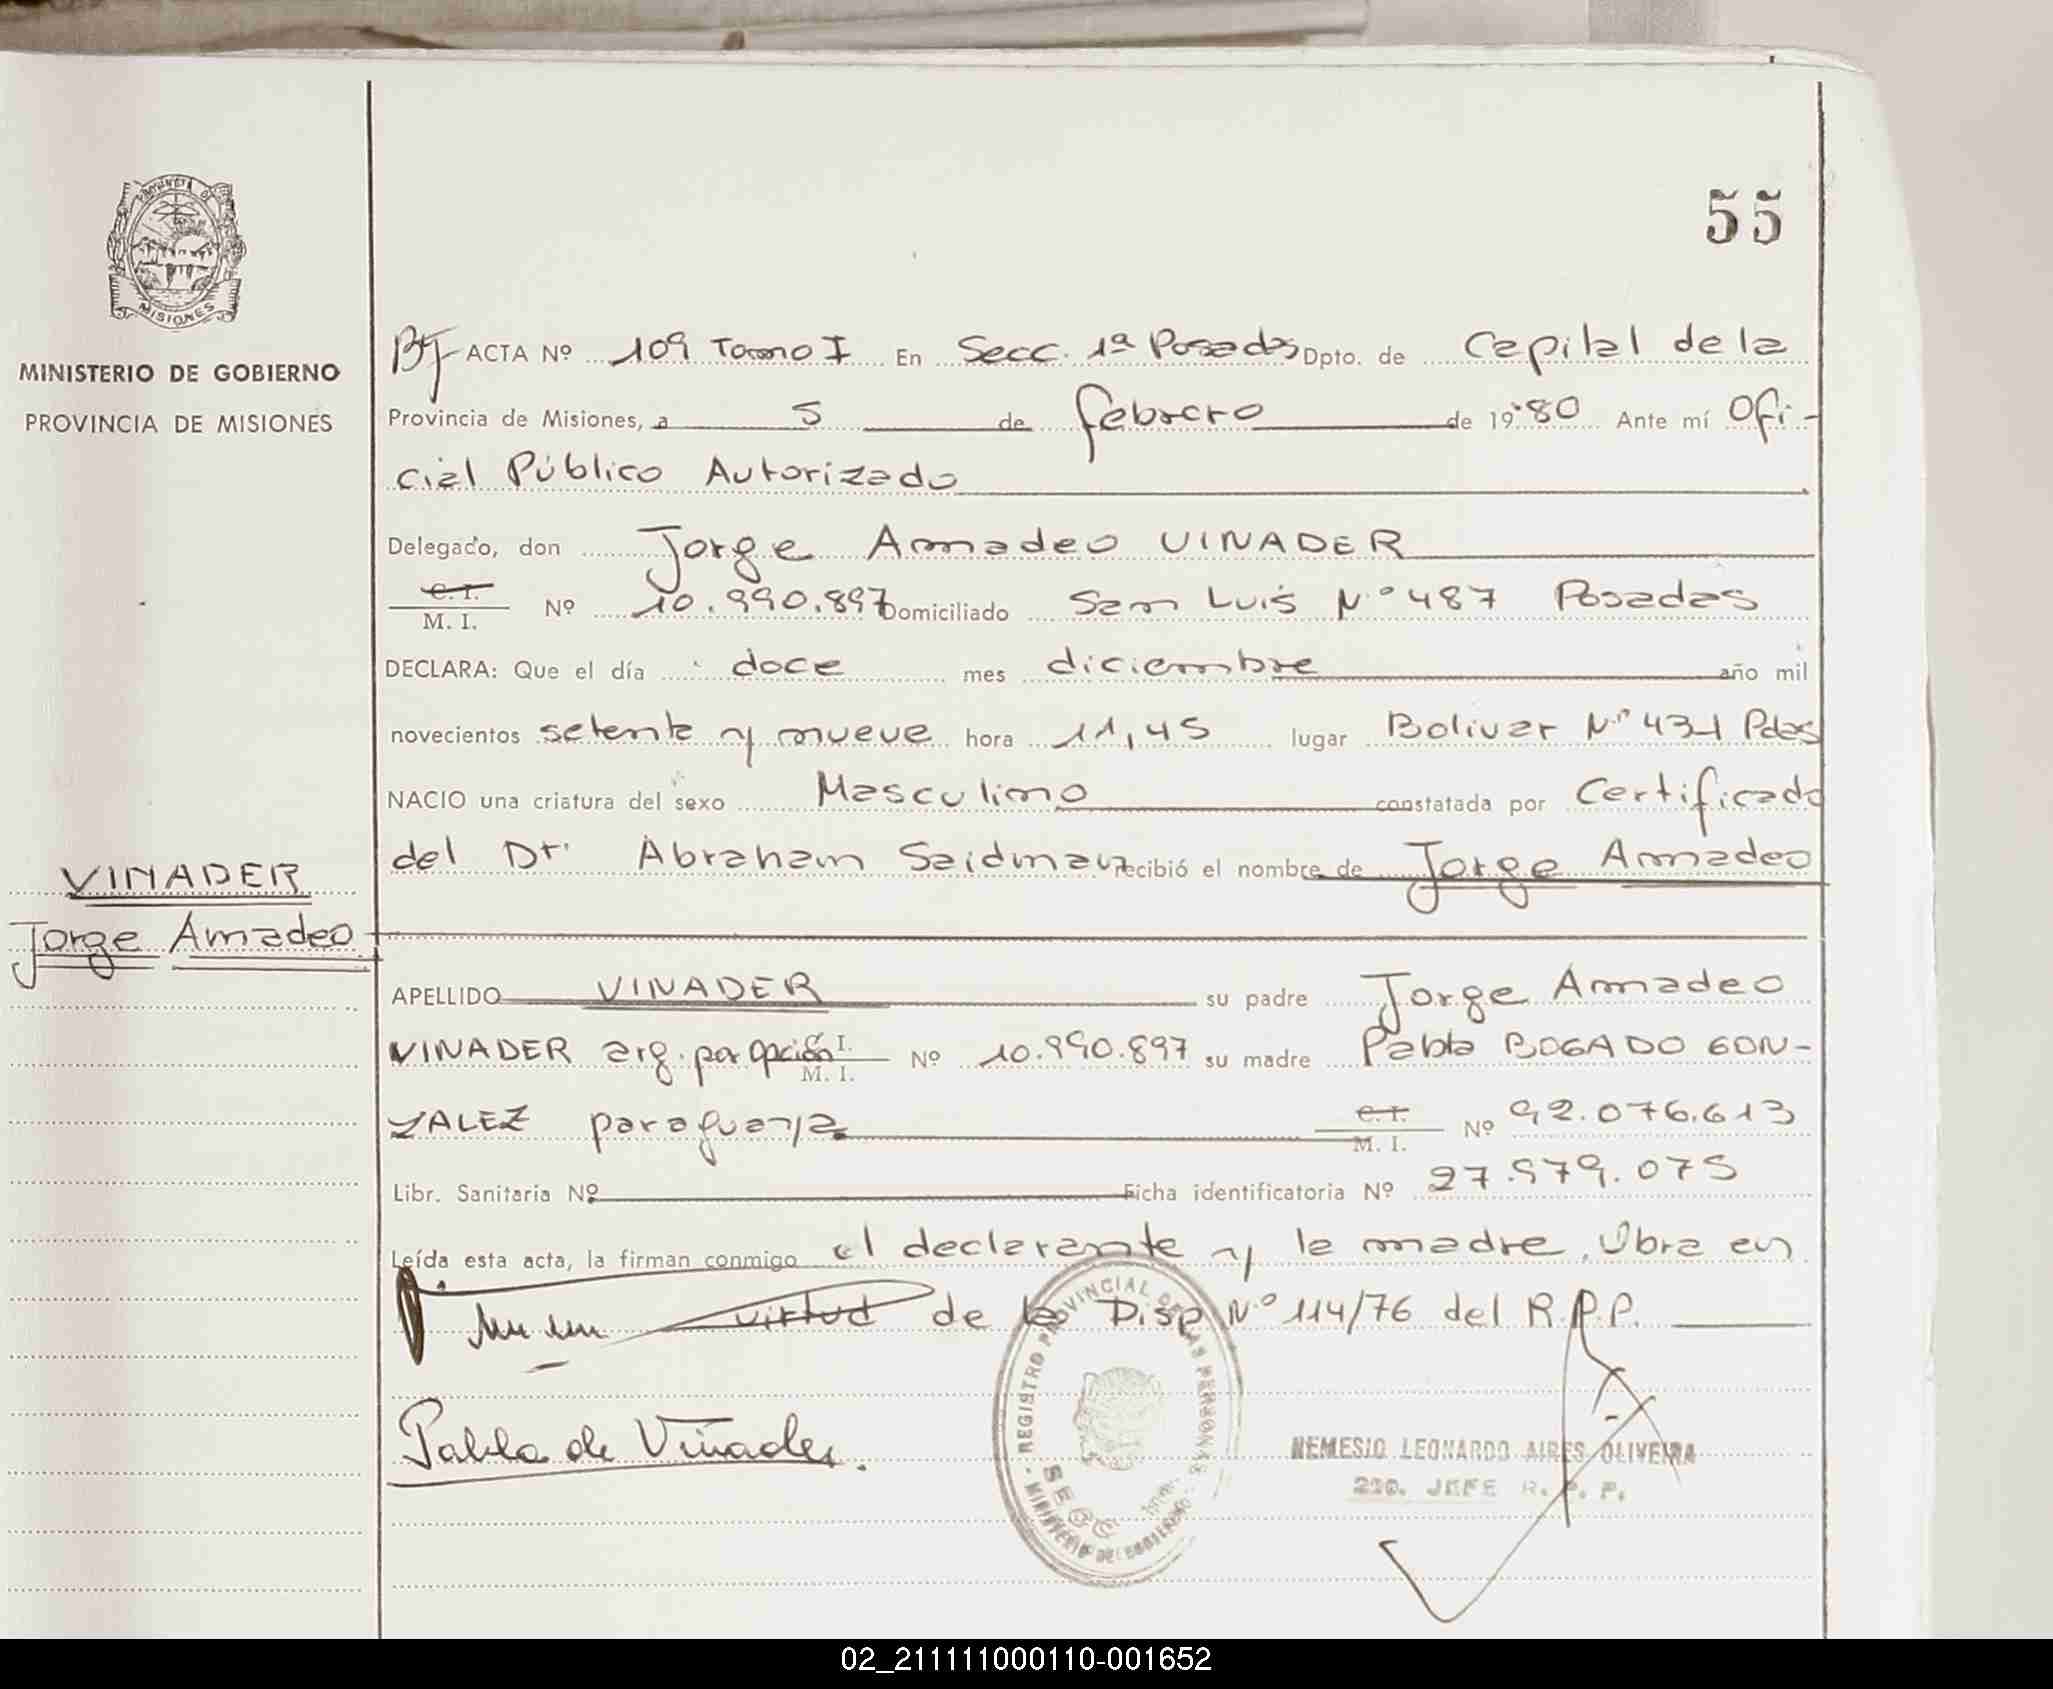 55
PROVINCIA DE
MISIONES
MINISTERIO DE GOBIERNO
PROVINCIA DE MISIONES
ACTA Nº 109 Tomo I En Secc. 1ª Posadas Dpto. de Capital de la
Provincia de Misiones, a 5 de febrero de 1980 Ante mí Ofi-
cial Público Autorizado
Delegado, don Jorge Amadeo VINADER
C. I.
M. I. Nº 10.990.897 Domiciliado San Luis Nº 487 Posadas
DECLARA: Que el día doce mes diciembre año mil
novecientos setenta y nueve hora 11,45 lugar Bolivar Nº 431 Pdas
NACIO una criatura del sexo Masculino constatada por Certificado
del Dr. Abraham Saidman recibió el nombre de Jorge Amadeo
VINADER
Jorge Amadeo
APELLIDO VINADER su padre Jorge Amadeo
VINADER arg. por opción C. I. M. I. Nº 10.990.897 su madre Pabla BOGADO GON-
ZALEZ paraguaya C. I. M. I. Nº 92.076.613
Libr. Sanitaria Nº Ficha identificatoria Nº 27.579.075
Leída esta acta, la firman conmigo el declarante y la madre. Obra en
virtud de la Disp Nº 114/76 del R.P.P.
Pabla de Viñader.
REGISTRO PROVINCIAL DE LAS PERSONAS
MINISTERIO DE GOBIERNO
SECC.
NEMESIO LEONARDO AIRES OLIVEIRA
2DO. JEFE R. P. P.
02_211111000110-001652